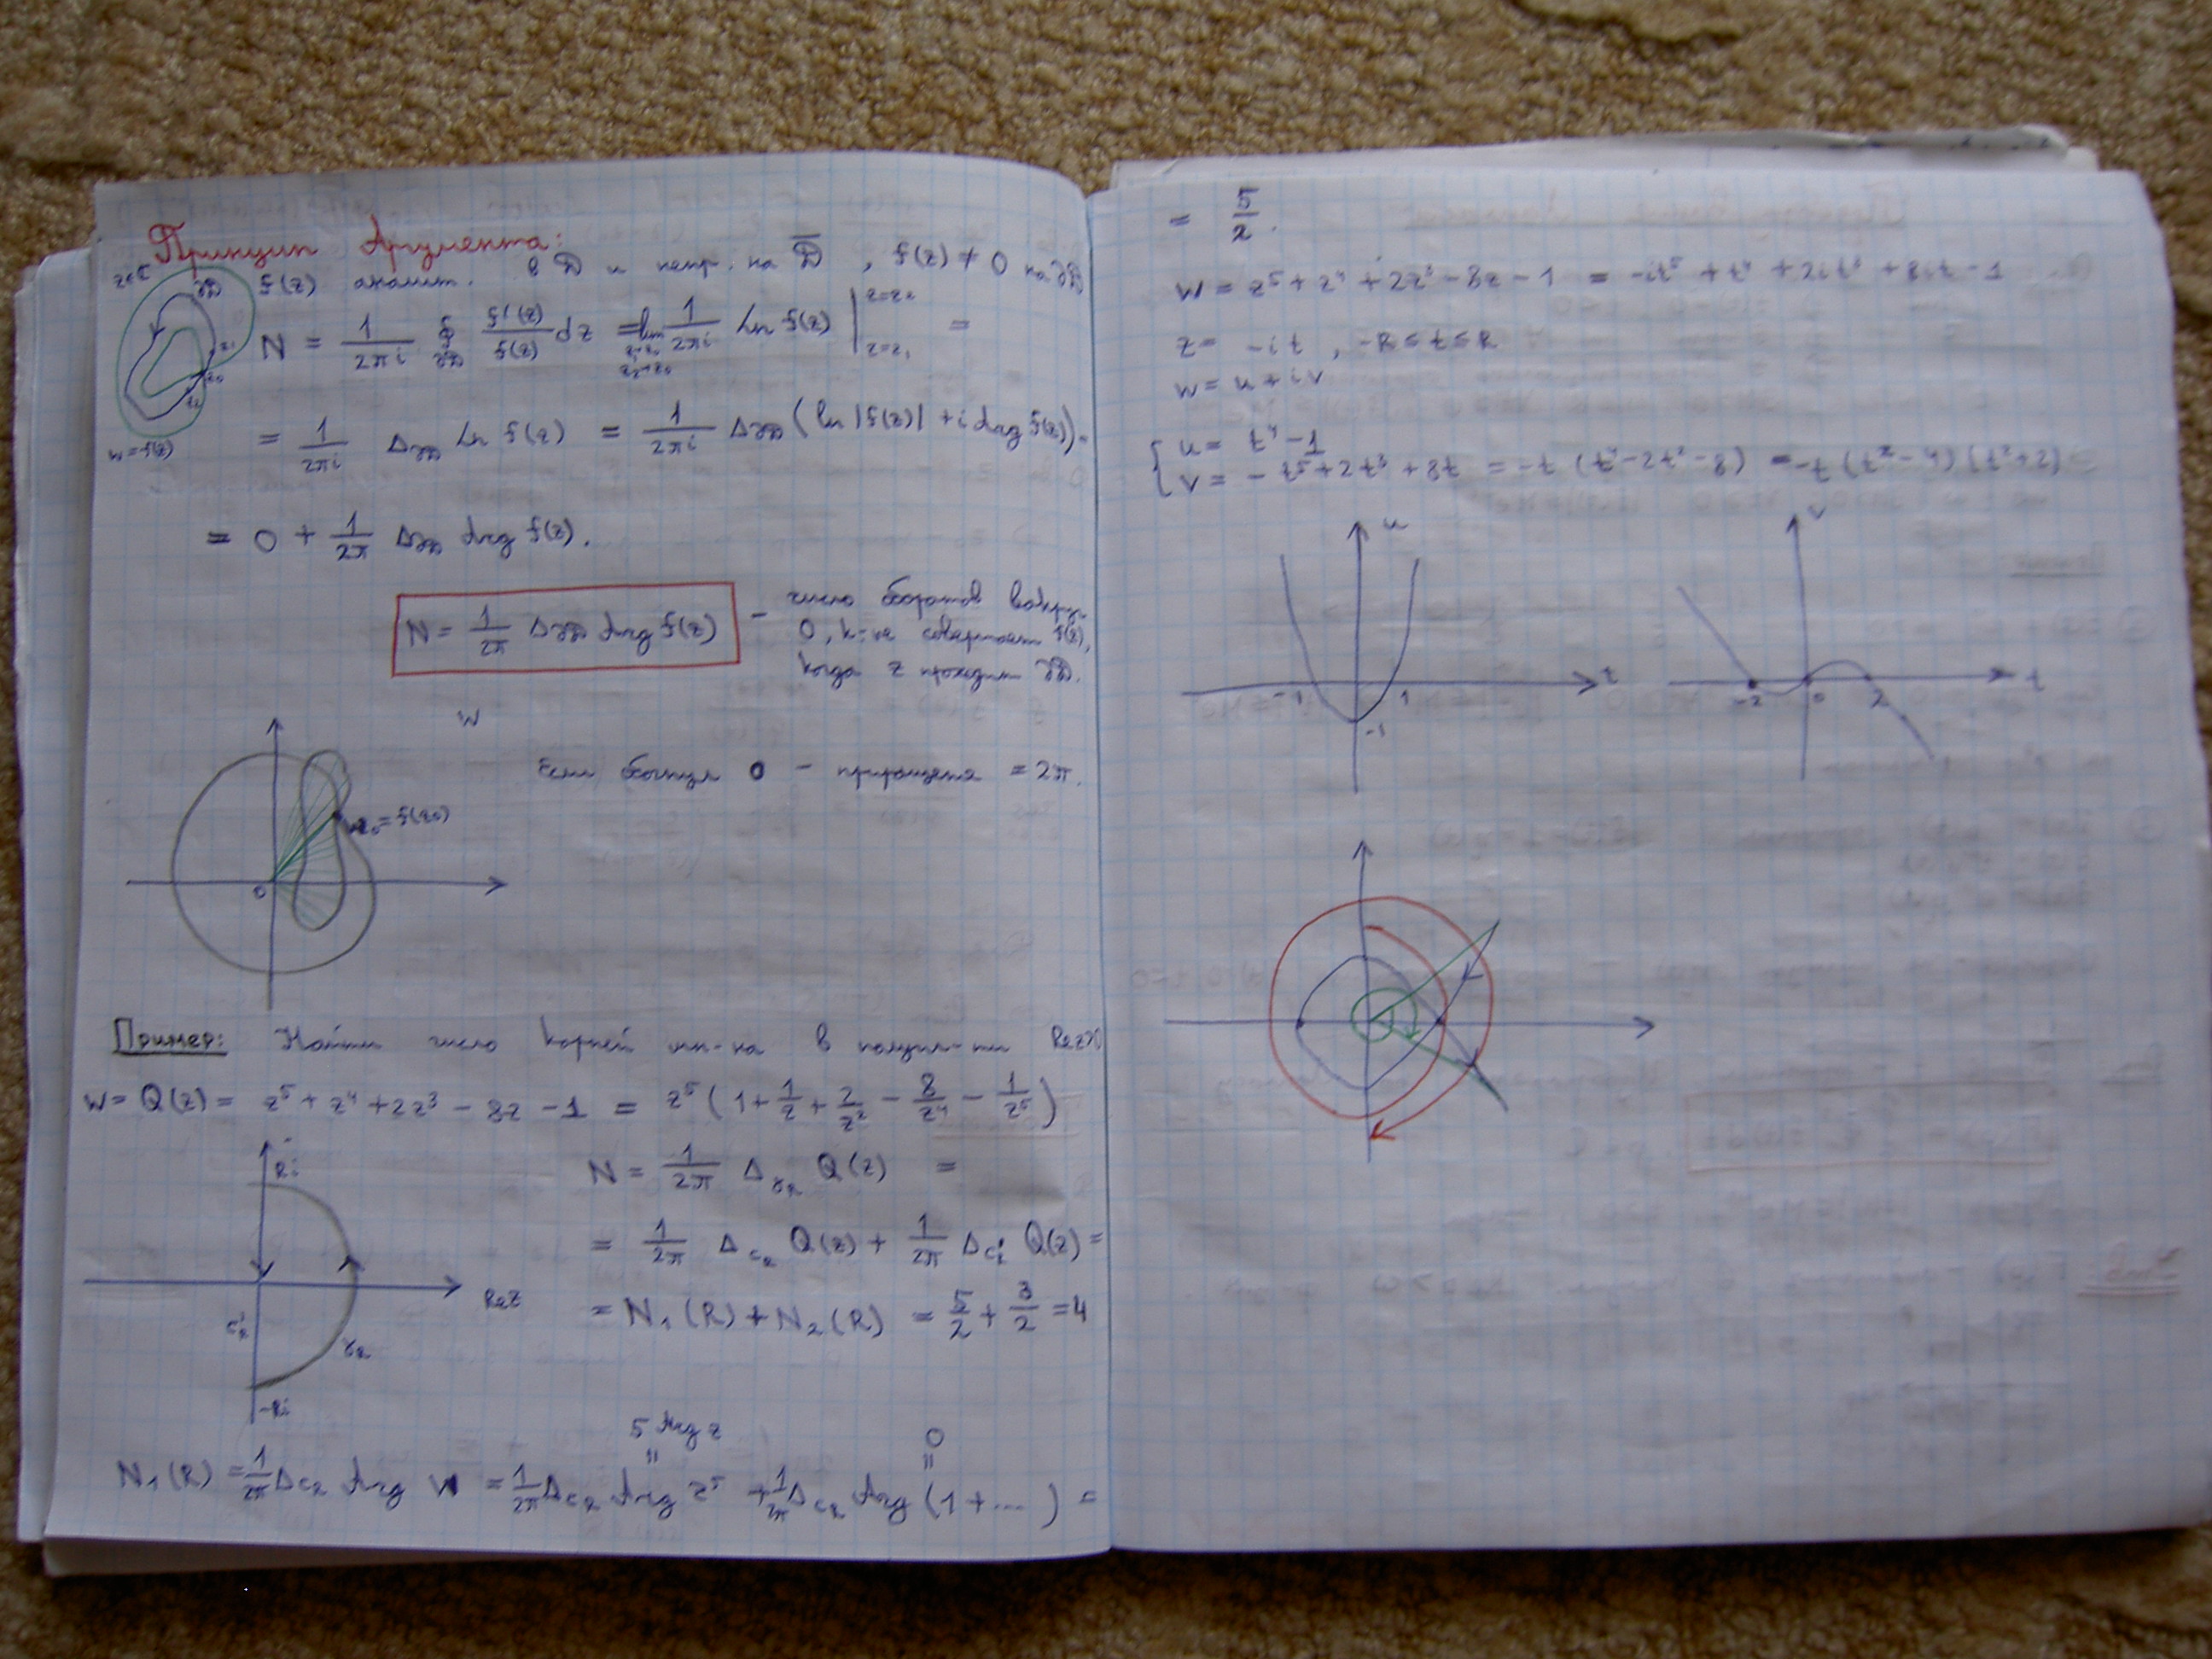 Принцип Аргумента:
z∈ℂ
∂𝒟
f(z) аналит. в 𝒟 и непр. на 𝒟̅, f(z) ≠ 0 на ∂𝒟
N = 1/(2πi) ∮_∂𝒟 f'(z)/f(z) dz = lim_{z₁→z₀, z₂→z₀} 1/(2πi) Ln f(z) |_{z=z₁}^{z=z₂} =
z₁
z₀
z₂
w=f(z)
= 1/(2πi) Δ_∂𝒟 Ln f(z) = 1/(2πi) Δ_∂𝒟 (ln |f(z)| + i Arg f(z)) =
= 0 + 1/(2π) Δ_∂𝒟 Arg f(z).
N = 1/(2π) Δ_∂𝒟 Arg f(z) – число оборотов вокруг
0, к-ые совершает f(z),
когда z проходит ∂𝒟.
W
Если обогнул 0 – приращение = 2π.
w₀=f(z₀)
0
Пример: Найти число корней мн-на в полупл-ти Re z>0
w = Q(z) = z⁵ + z⁴ + 2z³ – 8z – 1 = z⁵ (1 + 1/z + 2/z² – 8/z⁴ – 1/z⁵)
Ri
N = 1/(2π) Δ_γR Q(z) =
= 1/(2π) Δ_cR Q(z) + 1/(2π) Δ_c'R Q(z) =
Re z
c'R
γR
= N₁(R) + N₂(R) = 5/2 + 3/2 = 4
-Ri
5 Arg z
0
N₁(R) = 1/(2π) Δ_cR Arg W = 1/(2π) Δ_cR Arg z⁵ + 1/(2π) Δ_cR Arg (1 + ...) =
= 5/2.
w = z⁵ + z⁴ + 2z³ – 8z – 1 = -it⁵ + t⁴ + 2it³ + 8it – 1
z = -it, -R ≤ t ≤ R
w = u + iv
{ u = t⁴ – 1
v = -t⁵ + 2t³ + 8t = -t (t⁴ – 2t² – 8) = -t (t² – 4)(t² + 2)
u
v
-1 1 t
-2 0 2 t
-1